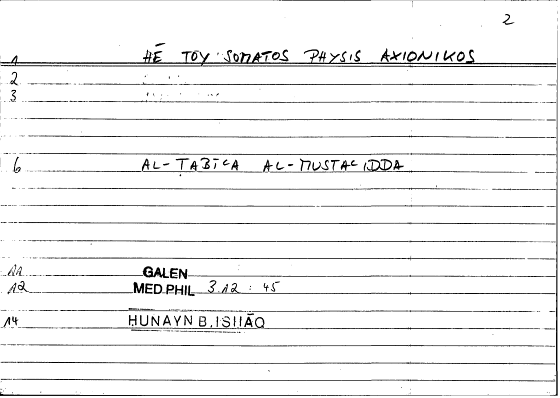 2
1 HĒ TOY SOMATOS PHYSIS AXIONIKOS
2
3
6 AL-ṬABĪCA AL-MUSTACIDDA
11 GALEN
12 MED.PHIL 3.12 : 45
14 HUNAYN B. ISḤĀQ